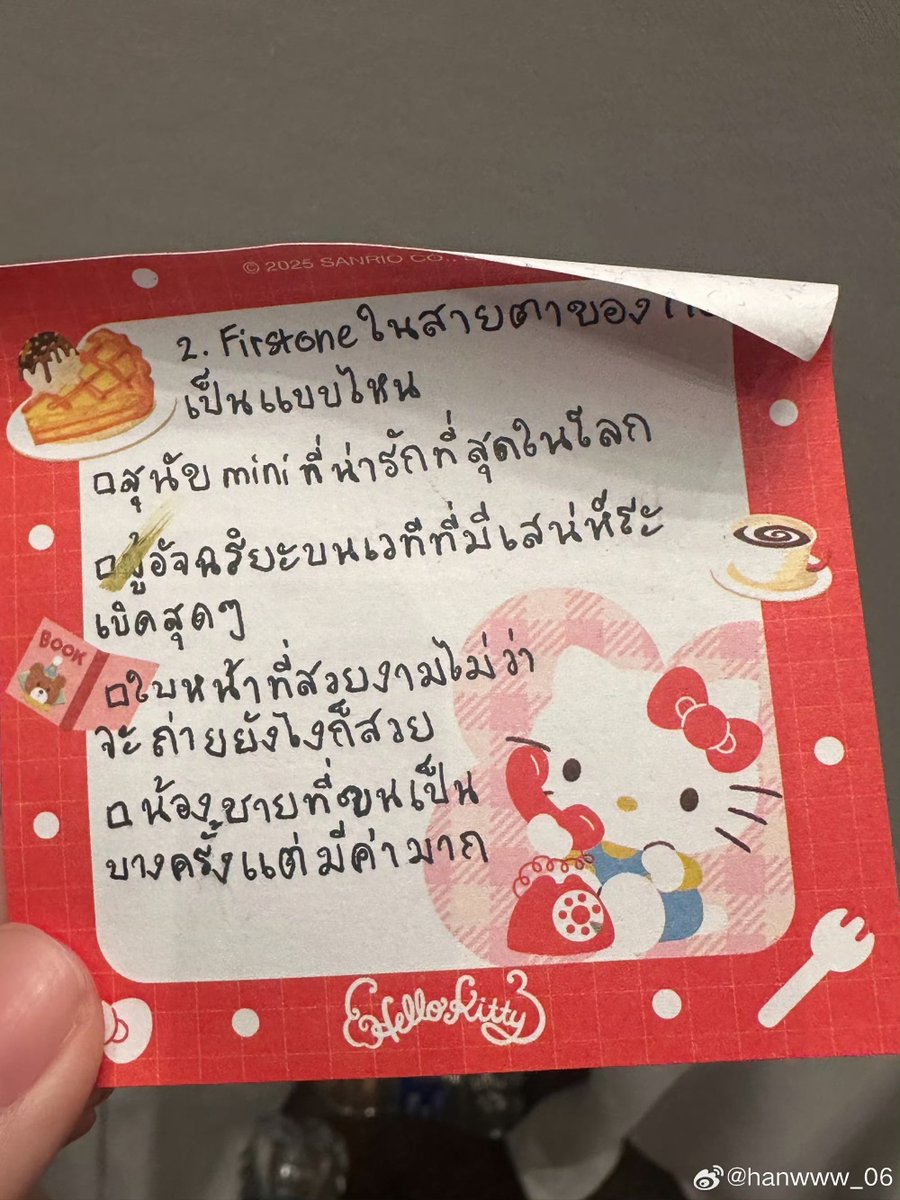 © 2025 SANRIO CO.,
2. Firstone ในสายตาของ
เป็นแบบไหน
□สุนัข mini ที่น่ารักที่สุดในโลก
□ผู้อัจฉริยะบนเวทีที่มีเสน่ห์ระ
เบิดสุดๆ
BOOK
□ใบหน้าที่สวยงามไม่ว่า
จะถ่ายยังไงก็สวย
□น้องชายที่ซนเป็น
บางครั้งแต่มีค่ามาก
Hello Kitty
@hanwww_06